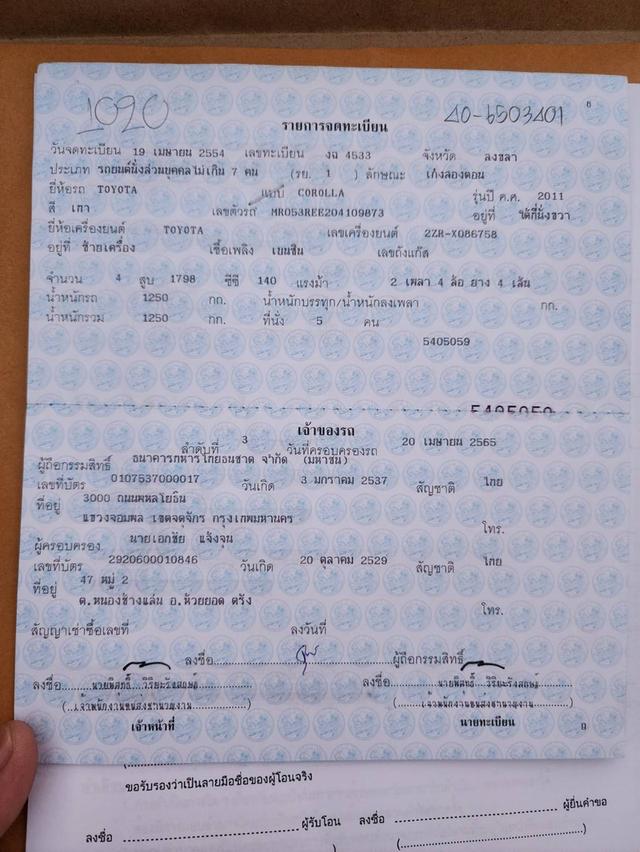 1090
40-6503401
6
รายการจดทะเบียน
วันจดทะเบียน 19 เมษายน 2554 เลขทะเบียน งฉ 4533 จังหวัด สงขลา
ประเภท รถยนต์นั่งส่วนบุคคลไม่เกิน 7 คน (รย. 1 ) ลักษณะ เก๋งสองตอน
ยี่ห้อรถ TOYOTA แบบ COROLLA รุ่นปี ค.ศ. 2011
สี เทา เลขตัวรถ MR053REE204109873 อยู่ที่ ใต้ที่นั่งขวา
ยี่ห้อเครื่องยนต์ TOYOTA เลขเครื่องยนต์ 2ZR-X086758
อยู่ที่ ซ้ายเครื่อง เชื้อเพลิง เบนซิน เลขถังแก๊ส
จำนวน 4 สูบ 1798 ซีซี 140 แรงม้า 2 เพลา 4 ล้อ ยาง 4 เส้น
น้ำหนักรถ 1250 กก. น้ำหนักบรรทุก/น้ำหนักลงเพลา กก.
น้ำหนักรวม 1250 กก. ที่นั่ง 5 คน
5405059
5405059
เจ้าของรถ
ลำดับที่ 3 วันที่ครอบครองรถ 20 เมษายน 2565
ผู้ถือกรรมสิทธิ์ ธนาคารทหารไทยธนชาต จำกัด (มหาชน)
เลขที่บัตร 0107537000017 วันเกิด 3 มกราคม 2537 สัญชาติ ไทย
ที่อยู่ 3000 ถนนพหลโยธิน
แขวงจอมพล เขตจตุจักร กรุงเทพมหานคร
โทร.
ผู้ครอบครอง นายเอกชัย แจ้งจุน
เลขที่บัตร 2920600010846 วันเกิด 20 ตุลาคม 2529 สัญชาติ ไทย
ที่อยู่ 47 หมู่ 2
ต.หนองช้างแล่น อ.ห้วยยอด ตรัง
โทร.
สัญญาเช่าซื้อเลขที่ ลงวันที่
ลงชื่อ ผู้ถือกรรมสิทธิ์
ลงชื่อ นายพิสุทธิ์ วิริยะรังสฤษฎ์ ลงชื่อ นายพิสุทธิ์ วิริยะรังสฤษฎ์
(เจ้าพนักงานขนส่งชำนาญงาน) (เจ้าพนักงานขนส่งชำนาญงาน)
เจ้าหน้าที่ นายทะเบียน
ขอรับรองว่าเป็นลายมือชื่อของผู้โอนจริง
ลงชื่อ ผู้รับโอน ลงชื่อ ผู้ยื่นคำขอ